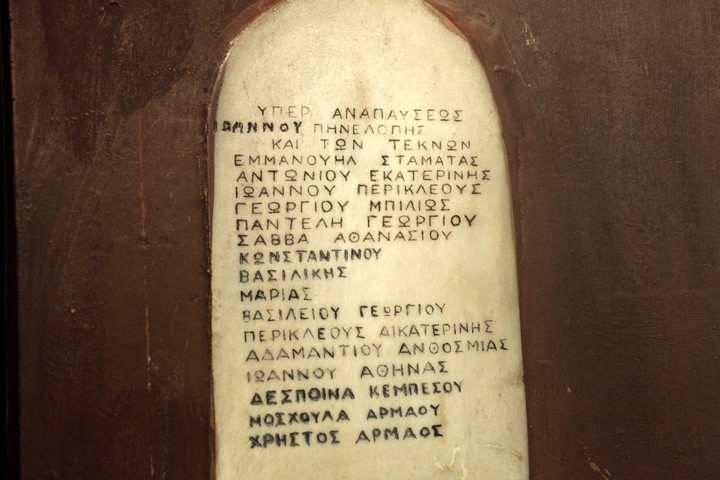 ΥΠΕΡ ΑΝΑΠΑΥΣΕΩΣ
ΙΩΑΝΝΟΥ ΠΗΝΕΛΟΠΗΣ
ΚΑΙ ΤΩΝ ΤΕΚΝΩΝ
ΕΜΜΑΝΟΥΗΛ ΣΤΑΜΑΤΑΣ
ΑΝΤΩΝΙΟΥ ΕΚΑΤΕΡΙΝΗΣ
ΙΩΑΝΝΟΥ ΠΕΡΙΚΛΕΟΥΣ
ΓΕΩΡΓΙΟΥ ΜΠΙΛΙΩΣ
ΠΑΝΤΕΛΗ ΓΕΩΡΓΙΟΥ
ΣΑΒΒΑ ΑΘΑΝΑΣΙΟΥ
ΚΩΝΣΤΑΝΤΙΝΟΥ
ΒΑΣΙΛΙΚΗΣ
ΜΑΡΙΑΣ
ΒΑΣΙΛΕΙΟΥ ΓΕΩΡΓΙΟΥ
ΠΕΡΙΚΛΕΟΥΣ ΑΙΚΑΤΕΡΙΝΗΣ
ΑΔΑΜΑΝΤΙΟΥ ΑΝΘΟΣΜΙΑΣ
ΙΩΑΝΝΟΥ ΑΘΗΝΑΣ
ΔΕΣΠΟΙΝΑ ΚΕΜΠΕΣΟΥ
ΜΟΣΧΟΥΛΑ ΑΡΜΑΟΥ
ΧΡΗΣΤΟΣ ΑΡΜΑΟΣ